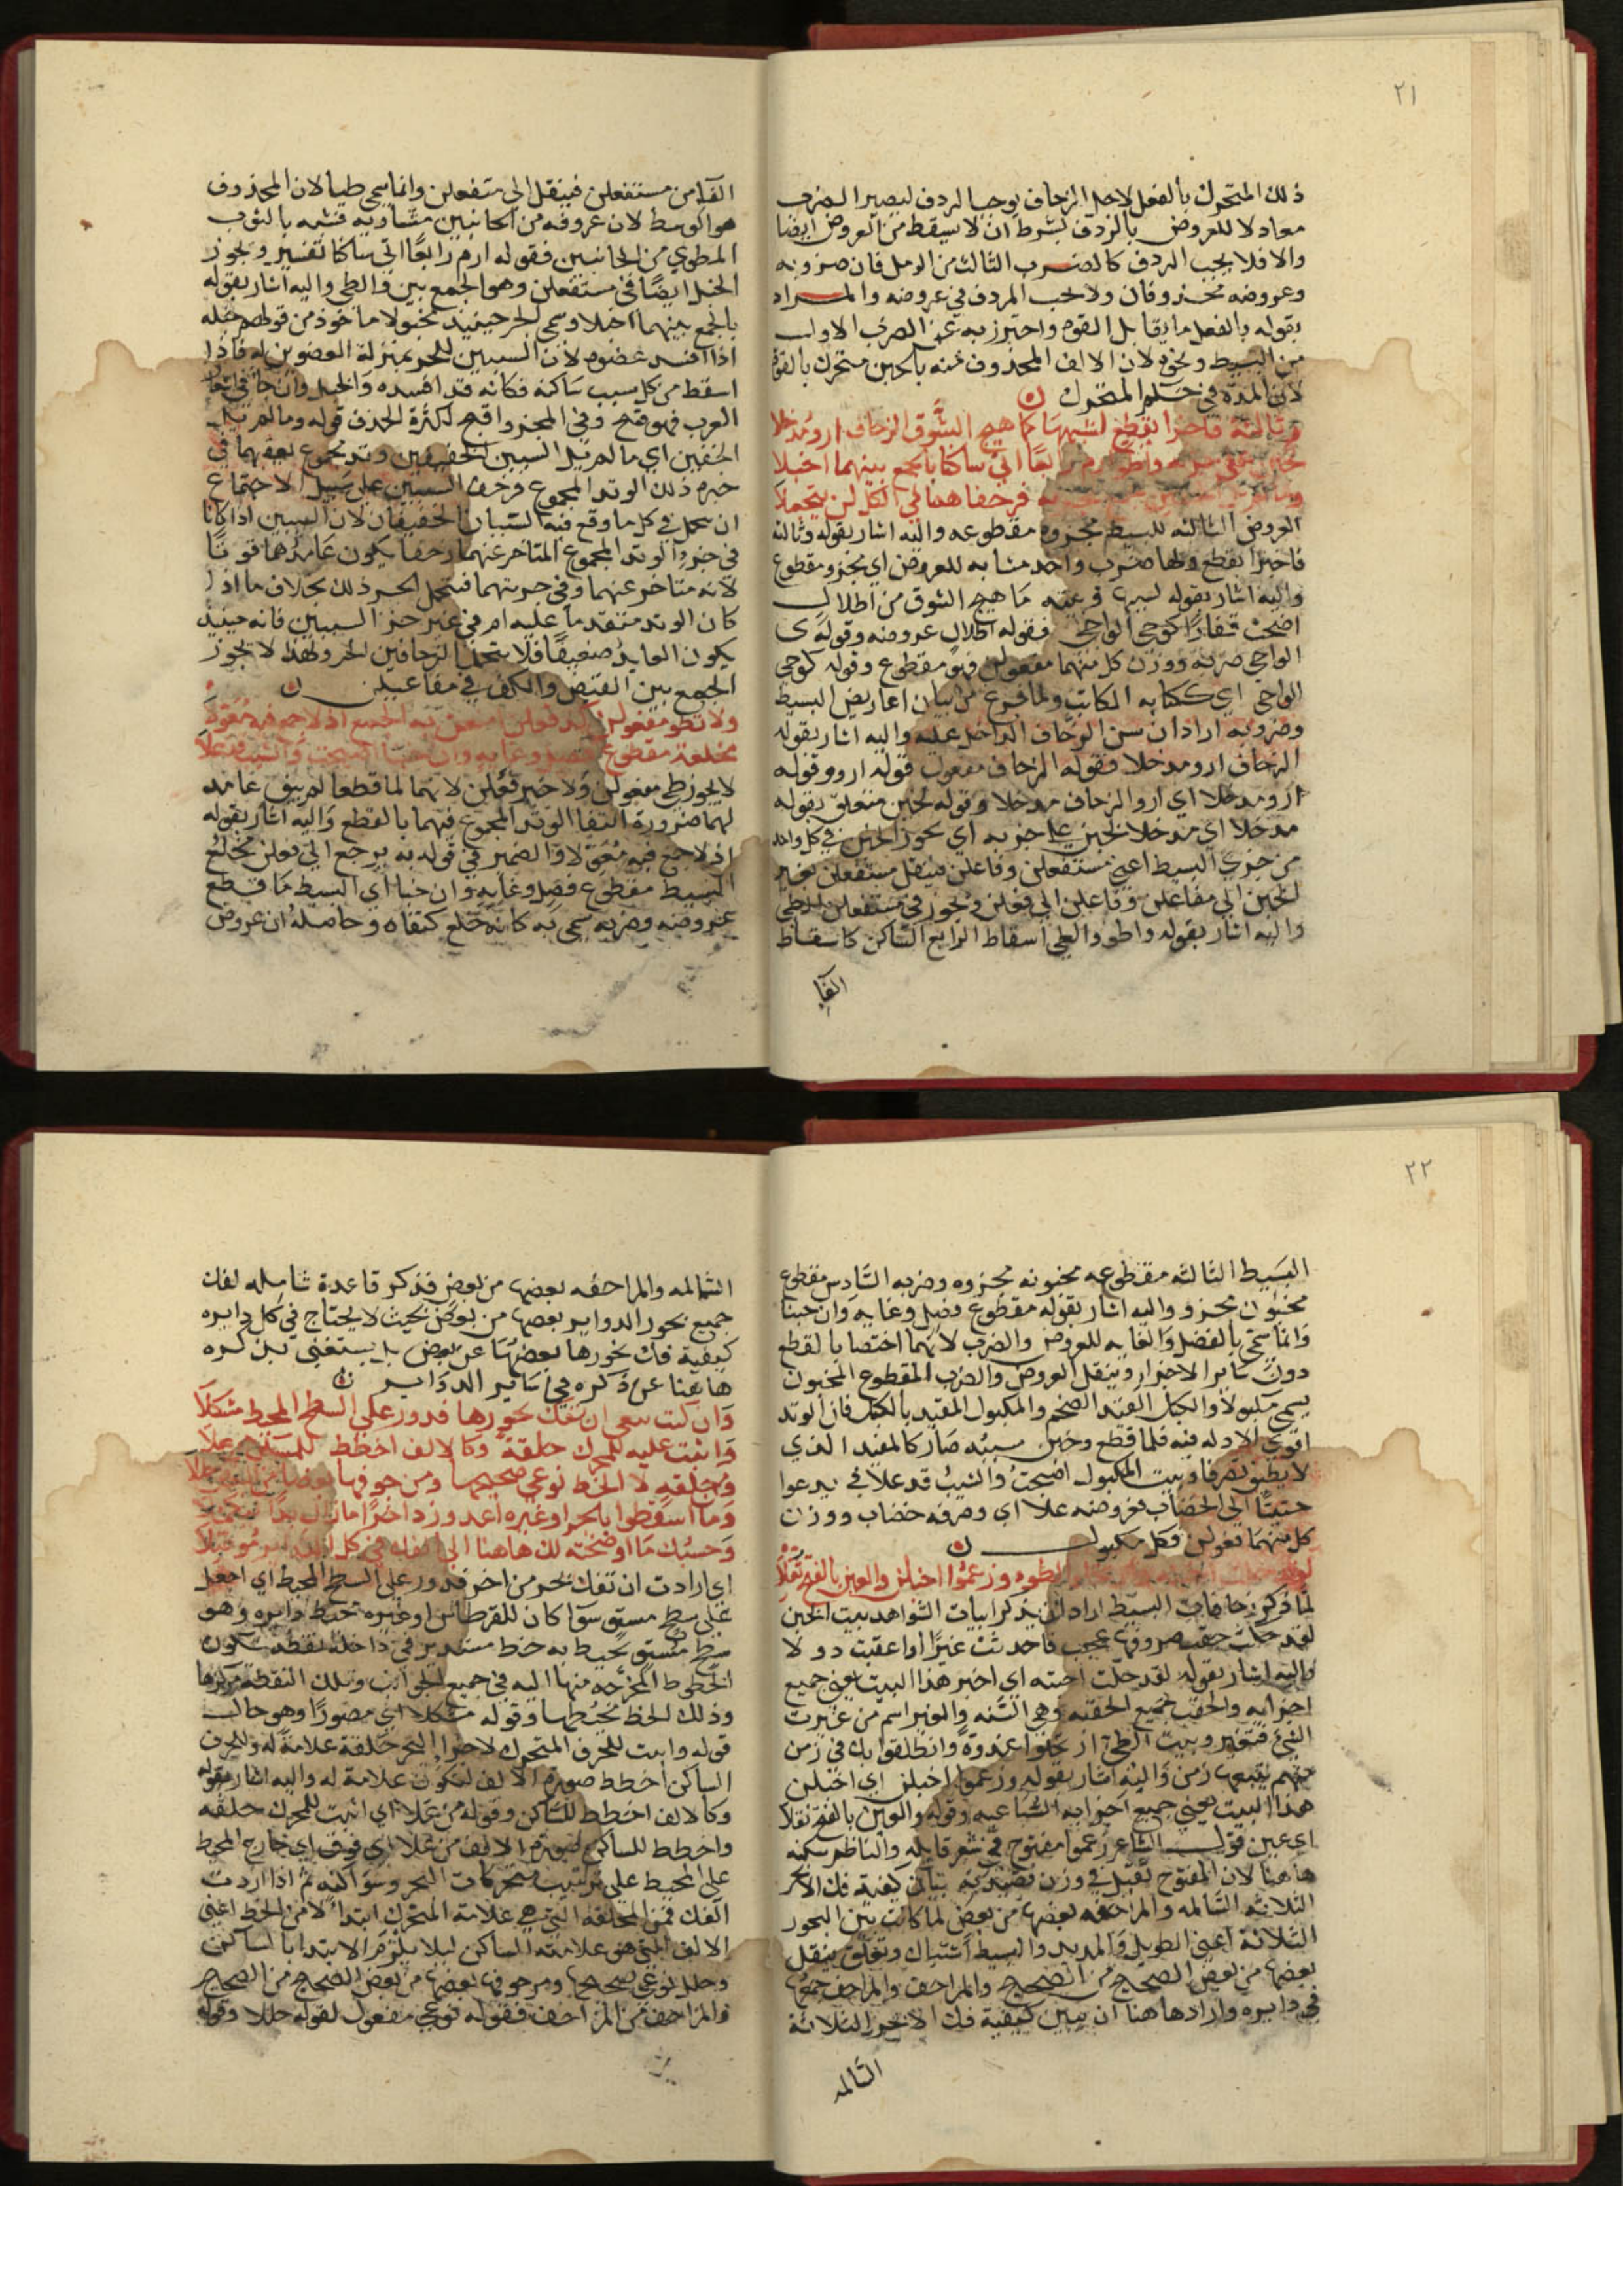 ٢١
ذلك المتحرك بالفعل لاجل الزحاف يوجب الردف ليصير الضرب
معادلا للعروض بالردف بشرط ان لا يسقط من العروض ايضا
والا فلا يجب الردف كالضرب الثالث من الرمل فان ضروبه
وعروضه محذوفان ولا يجب الردف في عروضه والمراد
بقوله بالفعل ما يقابل القوم واحترز به عن الضرب الاول
من البسيط ونحوه لان الالف المحذوف منه بالخبن متحرك بالقوة
لان المدة في حكم المتحرك ن
وثالثة فاجزا بقطع اشبهها كما هيج الشوق الزحاف ارو مدخلا
رابعا اي ساكنا بالجمع بينهما اخبلا
فزحفا هنا في الكل لن يتحملا
العروض الثالثة للبسيط مجزوة مقطوعه واليه اشار بقوله وثالثة
فاجزا بقطع ولها ضرب واحد مشابه للعروض اي مجزو مقطوع
واليه اشار بقوله ما هيج الشوق من اطلال
اضحت قفارا كوحي الواحي فقوله اطلال عروضه وقوله ي
الواحي ضربه ووزن كل منهما مفعولن فهو مقطوع وقوله كوحي
الواحي اي ككتابه المكاتب ولما فرغ من بيان اعاريض البسيط
وضروبه اراد ان يبين الزحاف الداخل عليه واليه اشار بقوله
الزحاف ارو مدخلا فقوله الزحاف مفعول قوله ارو وقوله
ارو مدخلا اي ارو الزحاف مدخلا وقوله لخبن متعلق بقوله
مدخلا اي مدخلا لخبن على جزيه اي يجوز الخبن في كل واحد
من جزي البسيط اعني مستفعلن وفاعلن فينقل مستفعلن بغير
الخبن الى مفاعلن وفاعلن الى فعلن ويجوز في مستفعلن الطي
واليه اشار بقوله واطو والطي اسقاط الرابع الساكن كاسقاط
الفا
الفا من مستفعلن فينقل الى متفعلن وانما سمي طيا لان المحذوف
هو الوسط لان حروفه من الجانبين متساويه فشبه بالثوب
المطوي من الجانبين فقوله ارم رابعا اي ساكنا تفسير ويجوز
الخبل ايضا في مستفعلن وهو الجمع بين والطي واليه اشار بقوله
بالجمع بينهما اخبلا وسمي الجزء حينئذ مخبولا ماخوذ من قولهم خبله
اذا افسد عضوه لان السببين للجزء بمنزلة العضوين له فاذا
اسقط من كل سبب ساكنه فكانه قد افسده والخبل وان جا في اشعار
العرب فهو قبيح وفي المجزو اقبح لكثرة الحذف قوله وما لم يزل
الخفيفين اي ما لم يزل السببين الخفيفين وتد مجموع بعدهما في
جزء ذلك الوتد المجموع فزحف السببين على سبيل الاجتماع
ان يتحمل في كل ما وقع فيه السببان الخفيفان لان السببين اذا كانا
في جزء والوتد المجموع المتاخر عنهما زحفا يكون عامدهما قويا
لانه متاخر عنهما وفي حيزهما فيتحمل الجزء ذلك بخلاف ما اذا
كان الوتد متقدما عليه ام في غير حيز السببين فانه حينئذ
يكون العايد ضعيفا فلا يتحمل الزحافين الجزء ولهذا لا يجوز
الجمع بين القبض والكف في مفاعيلن ن
ولا تطو مفعولن فعلن به الجمع اذ لا جمع فيه معولا
مخلعة مقطوع فصل وغايه وان خبنا اضحت والشيب قد علا
لا يجوز طي مفعولن ولا خبن فعلن لانهما لما قطعا لم يبق عامد
لهما ضرورة انتفا الوتد المجموع فيهما بالقطع واليه اشار بقوله
اذ لا جمع فيه معولا والضمير في قوله به يرجع الى فعلن مخلع
البسيط مقطوع فصل وغايه وان خبنا اي البسيط ما قطع
عروضه وضربه سمي به كانه خلع كتفاه وحاصله ان عروض
٢٢
البسيط الثالثه مقطوعه مخبونه مجزوه وضربه السادس مقطوع
مخبون مجزو واليه اشار بقوله مقطوع فصل وغايه وان خبنا
وانما سمي بالفصل والغايه للعروض والضرب لانهما اختصا بالقطع
دون ساير الاجزا وينقل العروض والضرب المقطوع المخبون
يسمى مكبولا والكبل القيد الضخم والمكبول المقيد بالكبل فان الوتد
اقوي لا دله فيه فلما قطع وخبن سببه صار كالمقيد الذي
لا يطيق تصرفا وبيت المكبول اضحت والشيب قد علاني يدعوا
حثيثا الى الخضاب فعروضه علا اي وضربه خضاب ووزن
كل منهما فعولن وكل مكبول ن
لقد خلت اطوه وزعموا اخبلن والعين بالفتح ثقلا
لما ذكر زحافات البسيط اراد ان يذكر ابيات الشواهد بيت الخبن
لقد خلت حقب صروفها عجب فاحدثت غيرا واعقبت دولا
واليه اشار بقوله لقد خلت اخبنه اي اخبن هذا البيت يعني جميع
اجزايه والحقب جميع الحقبه وهي السنه والغير اسم من غيرت
الشي فتغير وبيت الطي ارتحلوا غدوة وانطلقوا بك في زمن
منهم يتبعها زمن واليه اشار بقوله وزعموا اخبلن اي اخبلن
هذا البيت يعني جميع اجزايه السباعيه وقوله والعين بالفتح ثقلا
اي عين قول الشاعر زعموا مفتوح في شعر قايله والناظم سكنه
هاهنا لان المفتوح تقبل في وزن قصيدته بيان كيفية فك الابحر
الثلاثه السالمه والمزاحفه بعضها من بعض لما كانت بين البحور
الثلاثة اعني الطويل والمديد والبسيط اشتباك وتعلق ينقل
بعضها من بعض الصحيح من الصحيح والمزاحف والمزاحف جمعها
في دايره واراد هاهنا ان يبين كيفية فك الابحر الثلاثة
السالمه
السالمه والمزاحفه بعضها من بعض فذكر قاعدة شامله لفك
جميع بحور الدواير بعضها من بعض بحيث لا يحتاج في كل دايره
كيفية فك بحورها بعضها عن بعض بل يستغني بذكره
هاهنا عن ذكره في ساير الدواير ن
وان كنت تبغي ان تفك بحورها فدور على السطح المحيط مشكلا
واثبت عليه للمحرك حلقة وكالالف اخطط للمسكن من علا
ومن حلقه لا الخط نوعي صحيحها ومن جوفها بعضا
وما اسقطوا بالجزء اوغيره اعدد وزد اخرا ما زال بدا
وحسبك ما اوضحته لك هاهنا الى في كل
اي ارادت ان تفك بحر من اخر فدور على السطح المحيط اي اجعل
على سطح مستو سوا كان للقرطاس او غيره خط دايره وهو
سطح مستو يحيط به خط مستدير في داخله نقطه تكون
الخطوط المخرجه منها اليه في جميع الجوانب وتلك النقطة مركزها
وذلك الخط محيطها وقوله مشكلا اي مصورا وهو حال
قوله واثبت للحرف المتحرك لاجزا البحر حلقة علامة له وللحرف
الساكن اخطط صورة الالف لتكون علامة له واليه اشار بقوله
وكالالف اخطط للساكن وقوله من علا اي اثبت للمحرك حلقه
واخطط للساكن صورة الالف من علا اي فوق اي خارج المحيط
على المحيط على ترتيب متحركات البحر وسواكنه ثم اذا اردت
الفك فمن الحلقه التي هي علامة المتحرك ابتدا لا من الخط اعني
الالف التي هي علامة الساكن ليلا يلزم الابتدا بالساكن
وحلل نوعي صحيحها ومزحوفها بعضها من بعض الصحيح من الصحيح
والمزاحف من المزاحف فقوله نوعي مفعول لقوله حللا وقوله